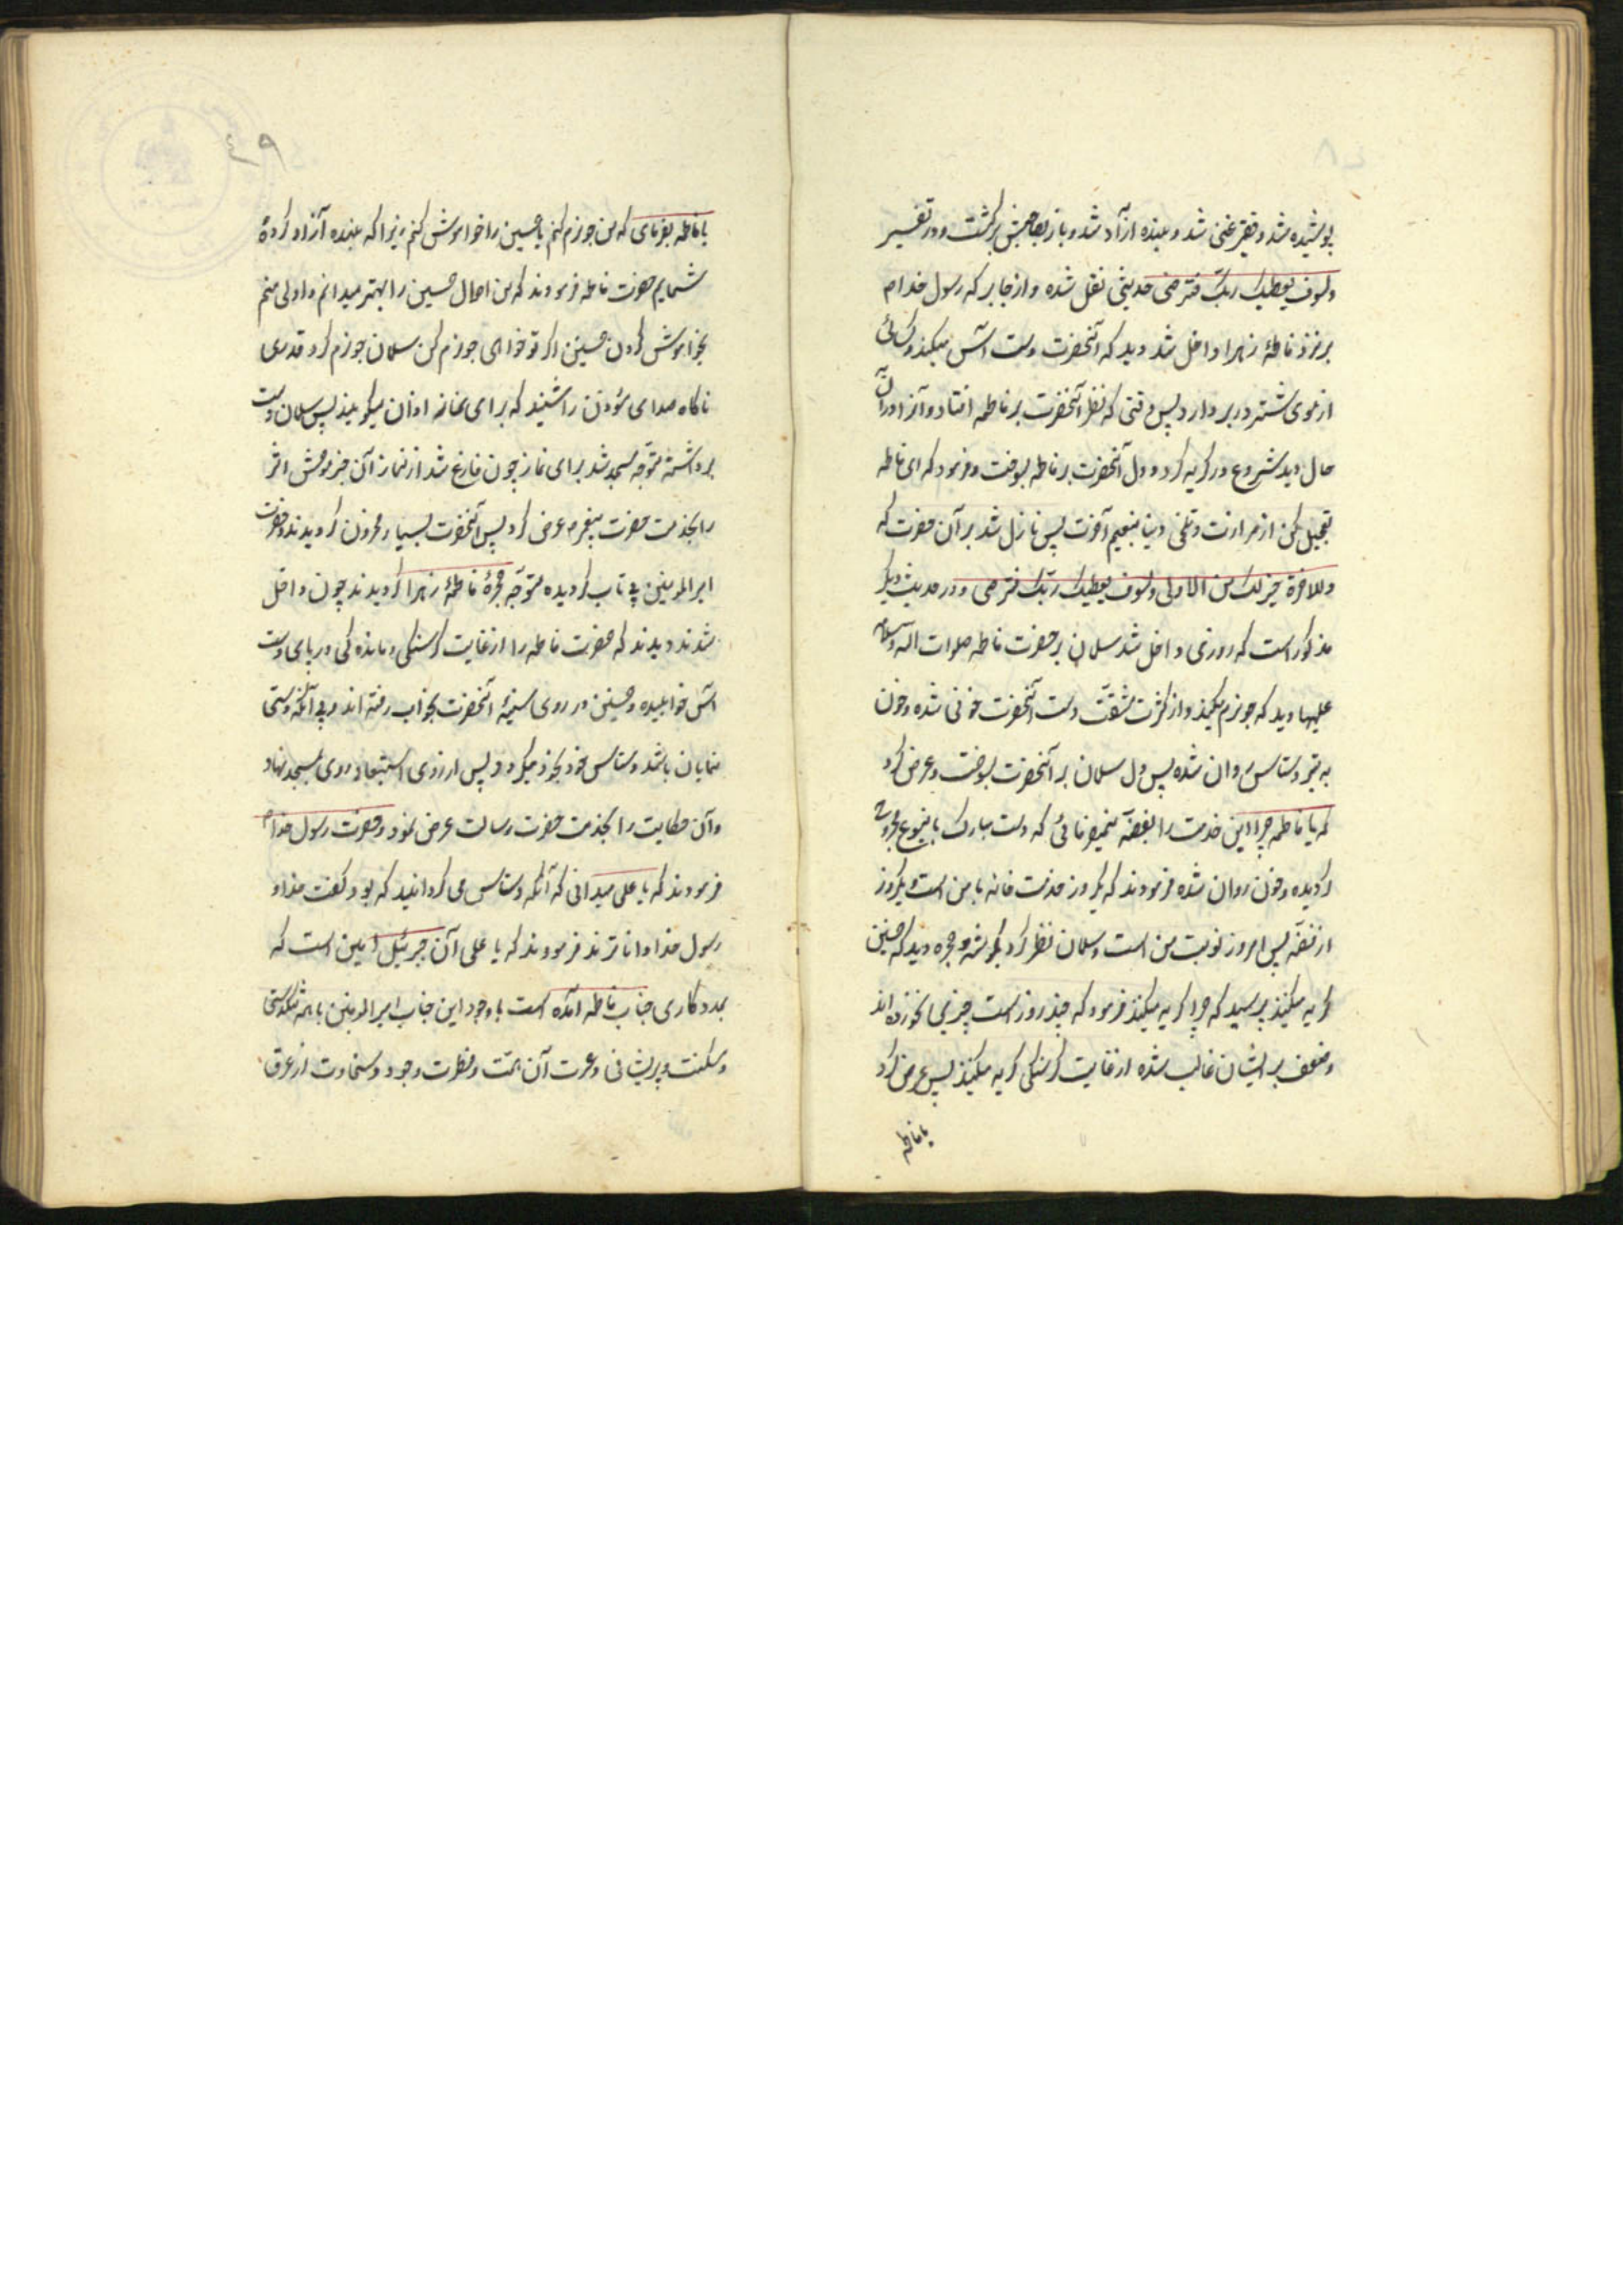 پوشیده شد و فقیر غنی شد و بنده آزاد شد و باز بصاحبش برگشت و در تفسیر
ولسوف یعطیک ربک فترضی حدیثی نقل شده و از جابر که رسول خدا م
بر فرزند فاطمهٔ زهرا داخل شد دید که آنحضرت دست آس میکند و کسائی
از موی شتر در بر دارد پس وقتی که نظر آنحضرت بر فاطمه افتاد و آنرا در آن
حال دید شروع در گریه کرد و دل آنحضرت بر فاطمه بسوخت و فرمود که ای فاطمه
تعجیل کن از مرارت و تلخی دنیا بنعیم آخرت پس نازل شد بر آن حضرت که
وللاخرة خیر لک من الاولی ولسوف یعطیک ربک فترضی و در حدیث دیگر
مذکور است که روزی داخل شد سلمان بر حضرت فاطمه صلوات الله و سلامه
علیها دید که جو نرم میکند و از کثرت مشقت دست آنحضرت خونی شده و خون
به تیر دستاس روان شده پس دل سلمان بر آنحضرت بسوخت و عرض کرد
که یا فاطمه چرا این خدمت را بفضه نمیفرمائی که دست مبارک باینوع مجروح
گردیده و خون روان شده فرمودند که یکروز خدمت خانه با من است و یکروز
از فضه پس امروز نوبت من است و سلمان نظر کرد بگوشهٔ حجره دید که حسین
گریه میکنند پرسید که چرا گریه میکنند فرمود که چند روز است چیزی نخورده‌اند
و ضعف بر ایشان غالب شده از غایت گرسنگی گریه میکنند پس عرض کرد
یا فاطمه
۴۹
یا فاطمه بفرمای که من جو نرم کنم یا حسین را خواموش کنم زیرا که بنده آزاد کردهٔ
شمایم حضرت فاطمه فرمودند که من احوال حسین را بهتر میدانم و اولی منم
بخواموش کردن حسین اگر تو خواهی جو نرم کن سلمان جو نرم کرد قدری
ناگاه صدای مؤذن را شنید که برای نماز اذان میگوید پس سلمان دست
برداشته متوجه مسجد شد برای نماز چون فارغ شد از نماز آن خبر موحش اثر
را بخدمت حضرت پیغمبر م عرض کرد پس آنحضرت بسیار محزون گردیدند و حضرت
امیر المومنین بی تاب گردیده متوجه حجرهٔ فاطمهٔ زهرا گردیدند چون داخل
شدند دیدند که حضرت فاطمه را از غایت گرسنگی و ماندگی در پای دست
آس خوابیده و حسین در روی سینهٔ آنحضرت بخواب رفته‌اند و بی آنکه دستی
نمایان باشد دستاس خود بخود میگردد پس از روی استعجاب روی بمسجد نهاد
و آن حکایت را بخدمت حضرت رسالت عرض نمود و حضرت رسول خدا م
فرمودند که یا علی میدانی که آنکه دستاس می گردانید که بود گفت خدا و
رسول خدا داناترند فرمودند که یا علی آن جبرئیل امین است که
بمددکاری جناب فاطمه آمده است با وجود این جناب امیر المومنین با همه تنگدستی
و مسکنت و پریشانی و عسرت آن همت و فطرت و جود و سخاوت از عرق